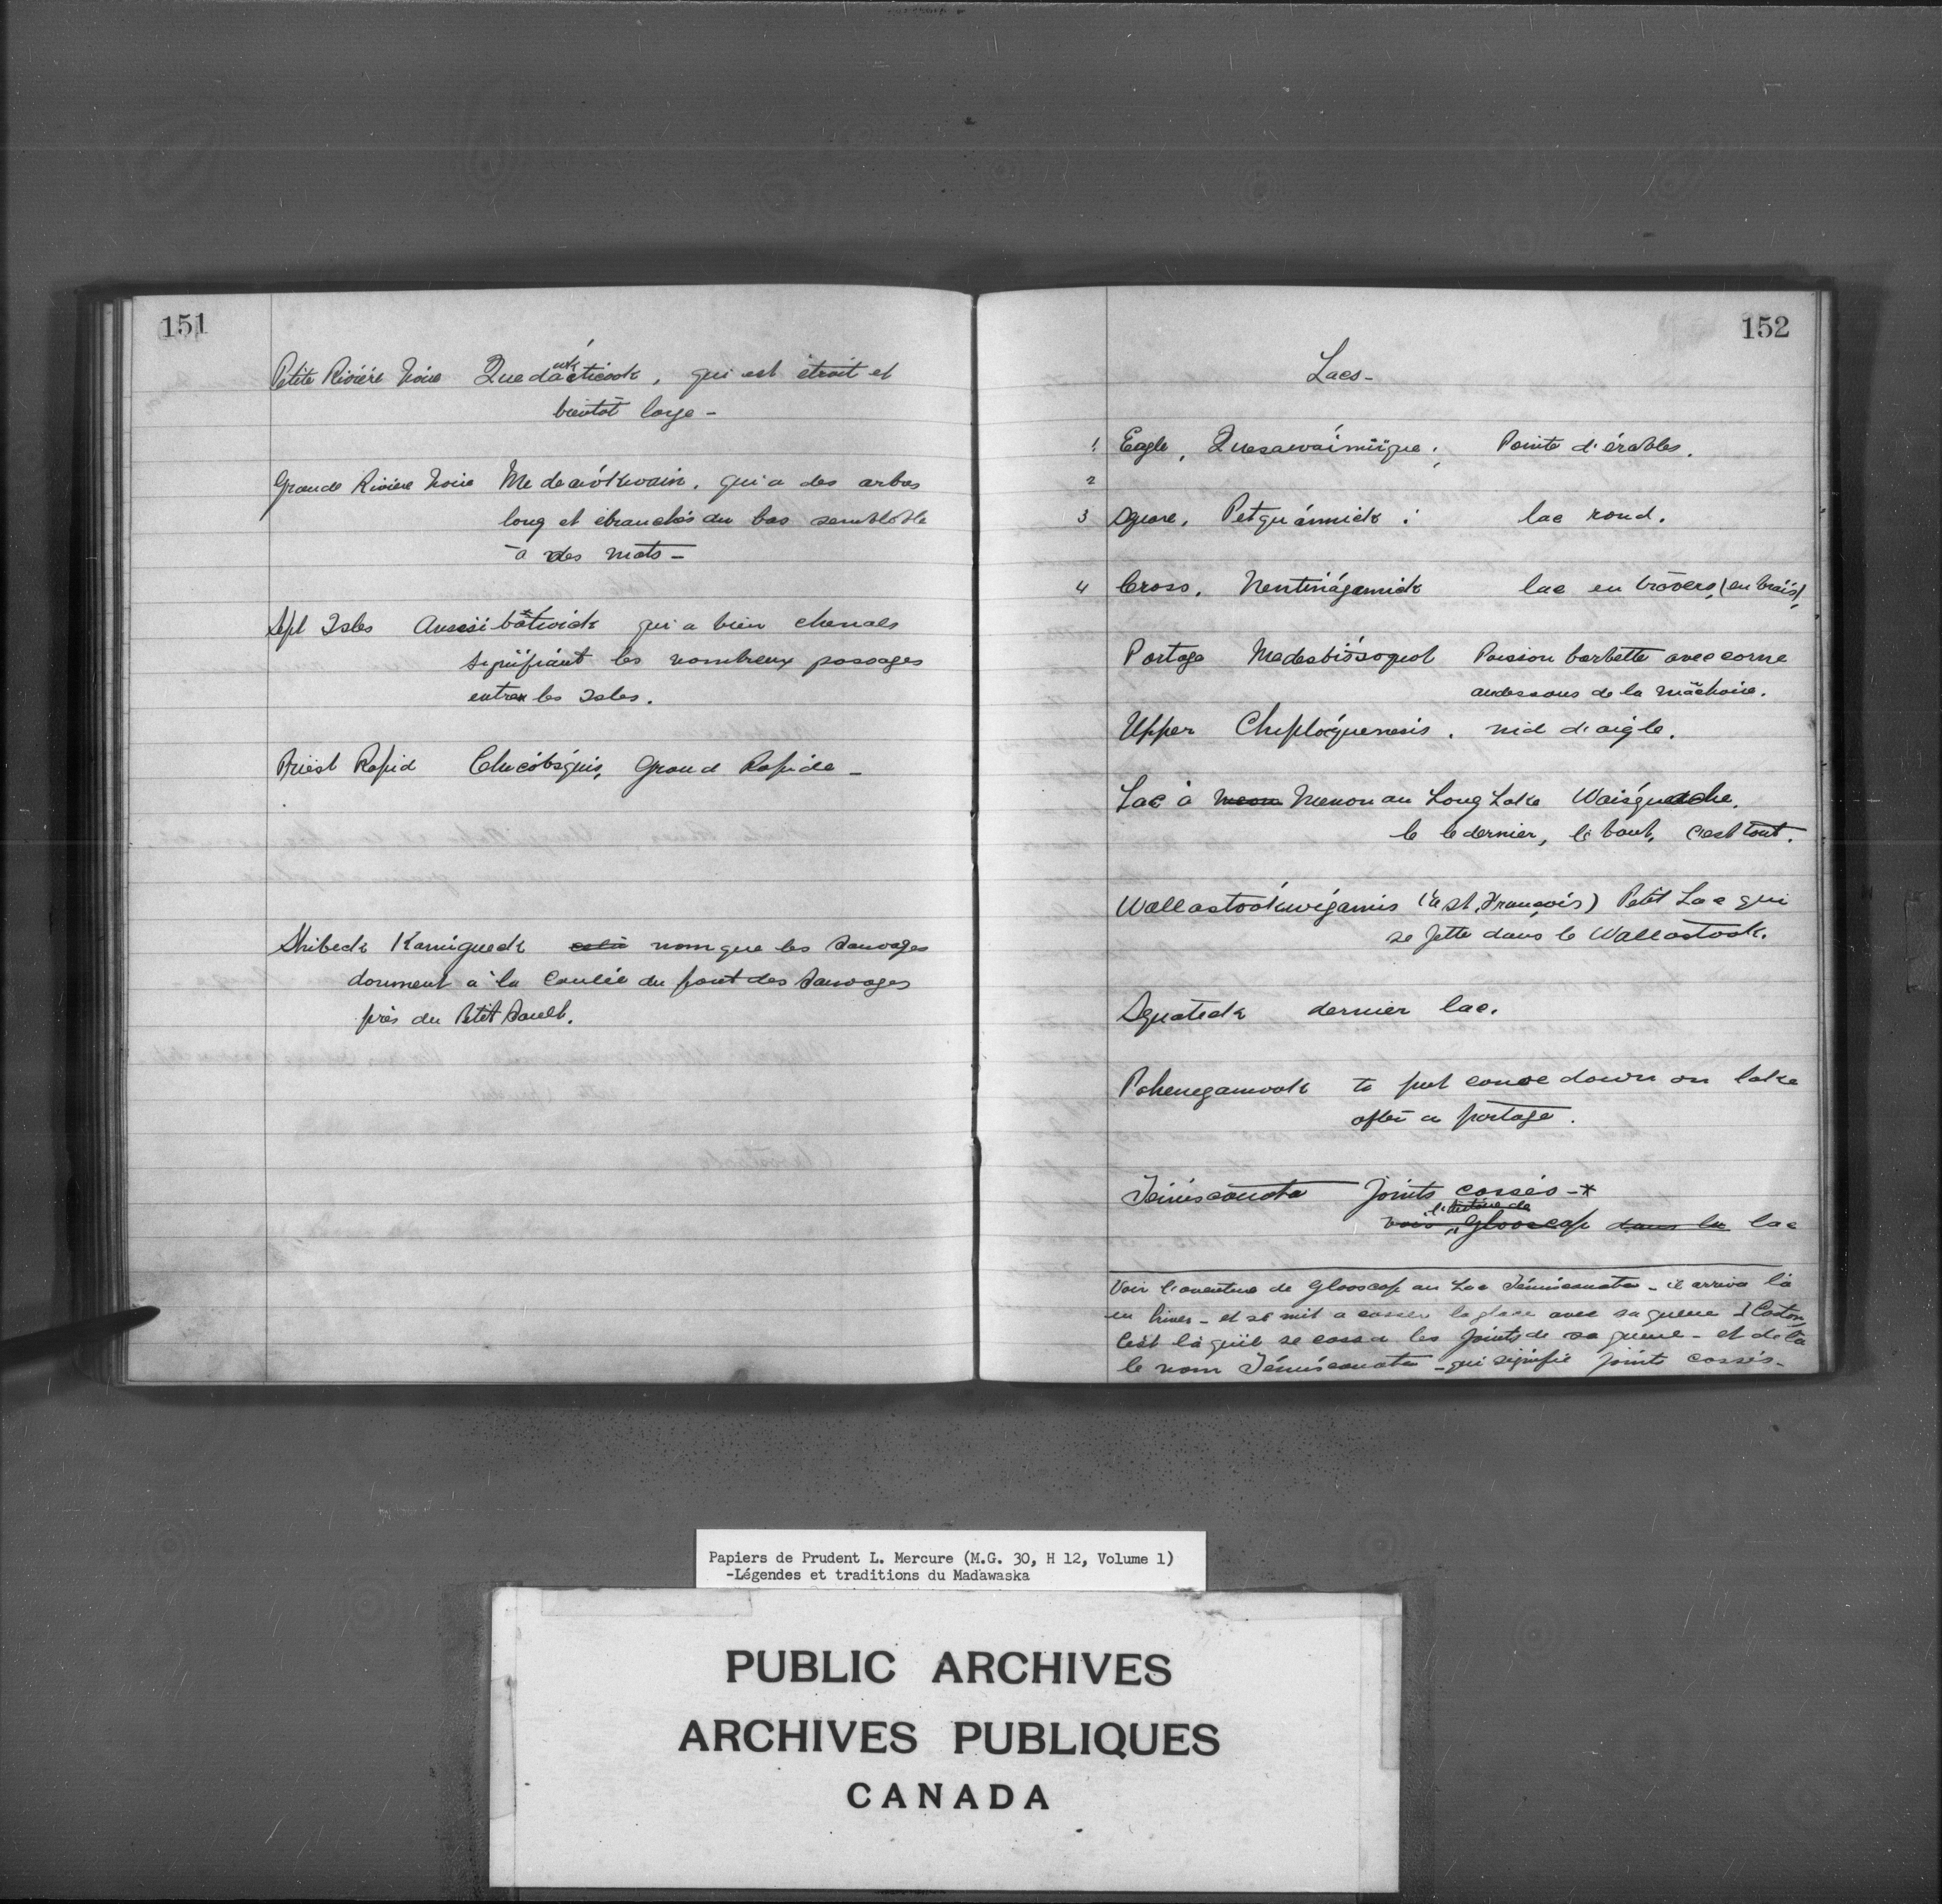 151
Petite Rivière Noire Quedaukticook, qui est étroit et
bientôt large -
Grande Rivière Noire Medeawókwain, qui a des arbres
long et ébranchés du bas semblable
à des mats -
Sept Isles Auessibátwick qui a bien chenals
signifiant les nombreux passages
entre les Isles.
Priest Rapid Chicóbsquis, Grand Rapide -
Skibeck Kamigueck nom que les Sauvages
donnent à la Coulée du pont des Sauvages
près du Petit Sault.
152
Lacs -
1 Eagle, Quesawaímiïque; Pointe d'érables.
2
3 Square, Petquámick: lac rond.
4 Cross, Nentinágamick lac en travers, (en biais),
Portage Medesbissoquot Poisson barbette avec corne
audessous de la mâchoire.
Upper Cheploéquenesis. nid d'aigle.
Lac à Menon au Long Lake Waisguesche.
le le dernier, le bout, c'est tout.
Wallastookwégamis (à St. François) Petit Lac qui
se jette dans le Wallastook.
Squateck dernier lac.
Pohenegamook to put canoe down on lake
after a portage.
Témiscouata joints cassés - *
voir l'histoire de Glooscap dans le lac
Voir l'aventure de Glooscap au Lac Témiscouata - il arriva là
en hiver - et se mit a casser la glace avec sa queue d Castor,
C'est là qu'il se cassa les joints de sa queue - et de là
le nom Témiscouata - qui signifie joints cassés -
Papiers de Prudent L. Mercure (M.G. 30, H 12, Volume 1)
-Légendes et traditions du Madawaska
PUBLIC ARCHIVES
ARCHIVES PUBLIQUES
CANADA